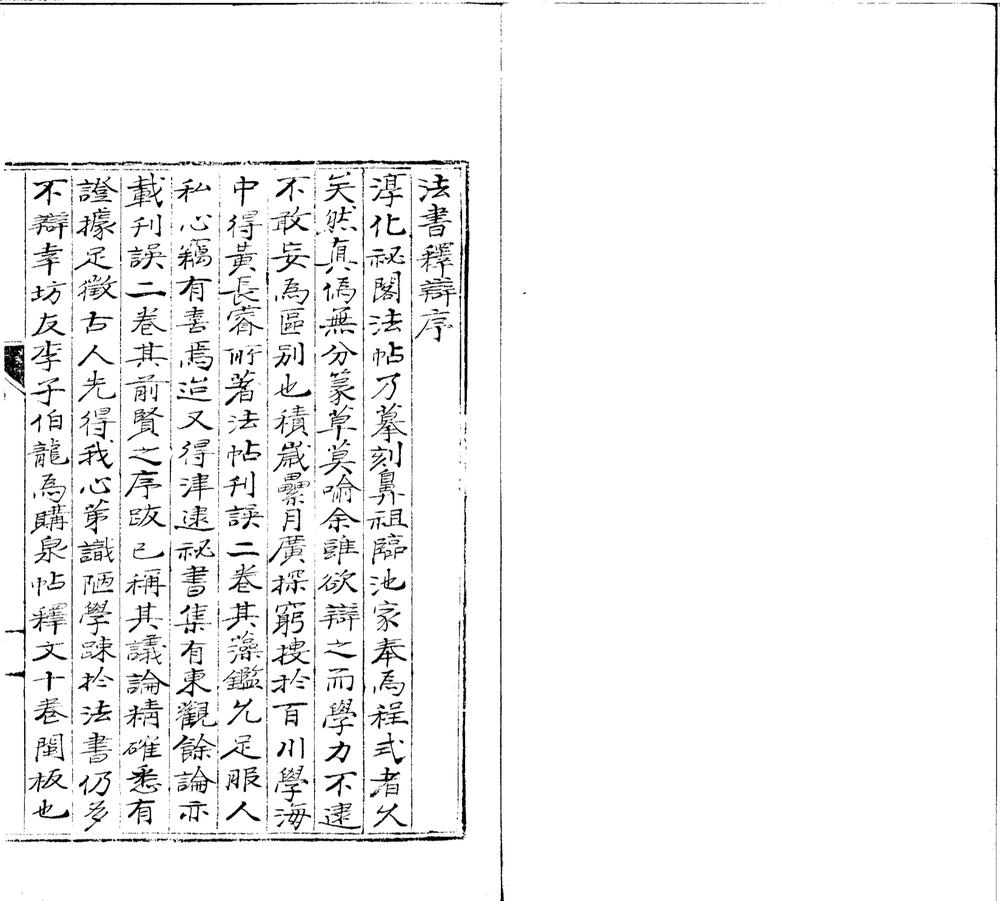 法書釋辯序
淳化祕閣法帖乃摹刻鼻祖臨池家奉為程式者久
矣然真偽無分篆草莫喻余雖欲辯之而學力不逮
不敢妄為區別也積歲纍月廣探窮搜於百川學海
中得黃長睿所著法帖刊誤二卷其藻鑑允足服人
私心竊有喜焉迨又得津逮祕書集有東觀餘論亦
載刊誤二卷其前賢之序跋已稱其議論精確悉有
證據足徵古人先得我心第識陋學踈於法書仍多
不辯幸坊友李子伯龍為購泉帖釋文十卷閩板也